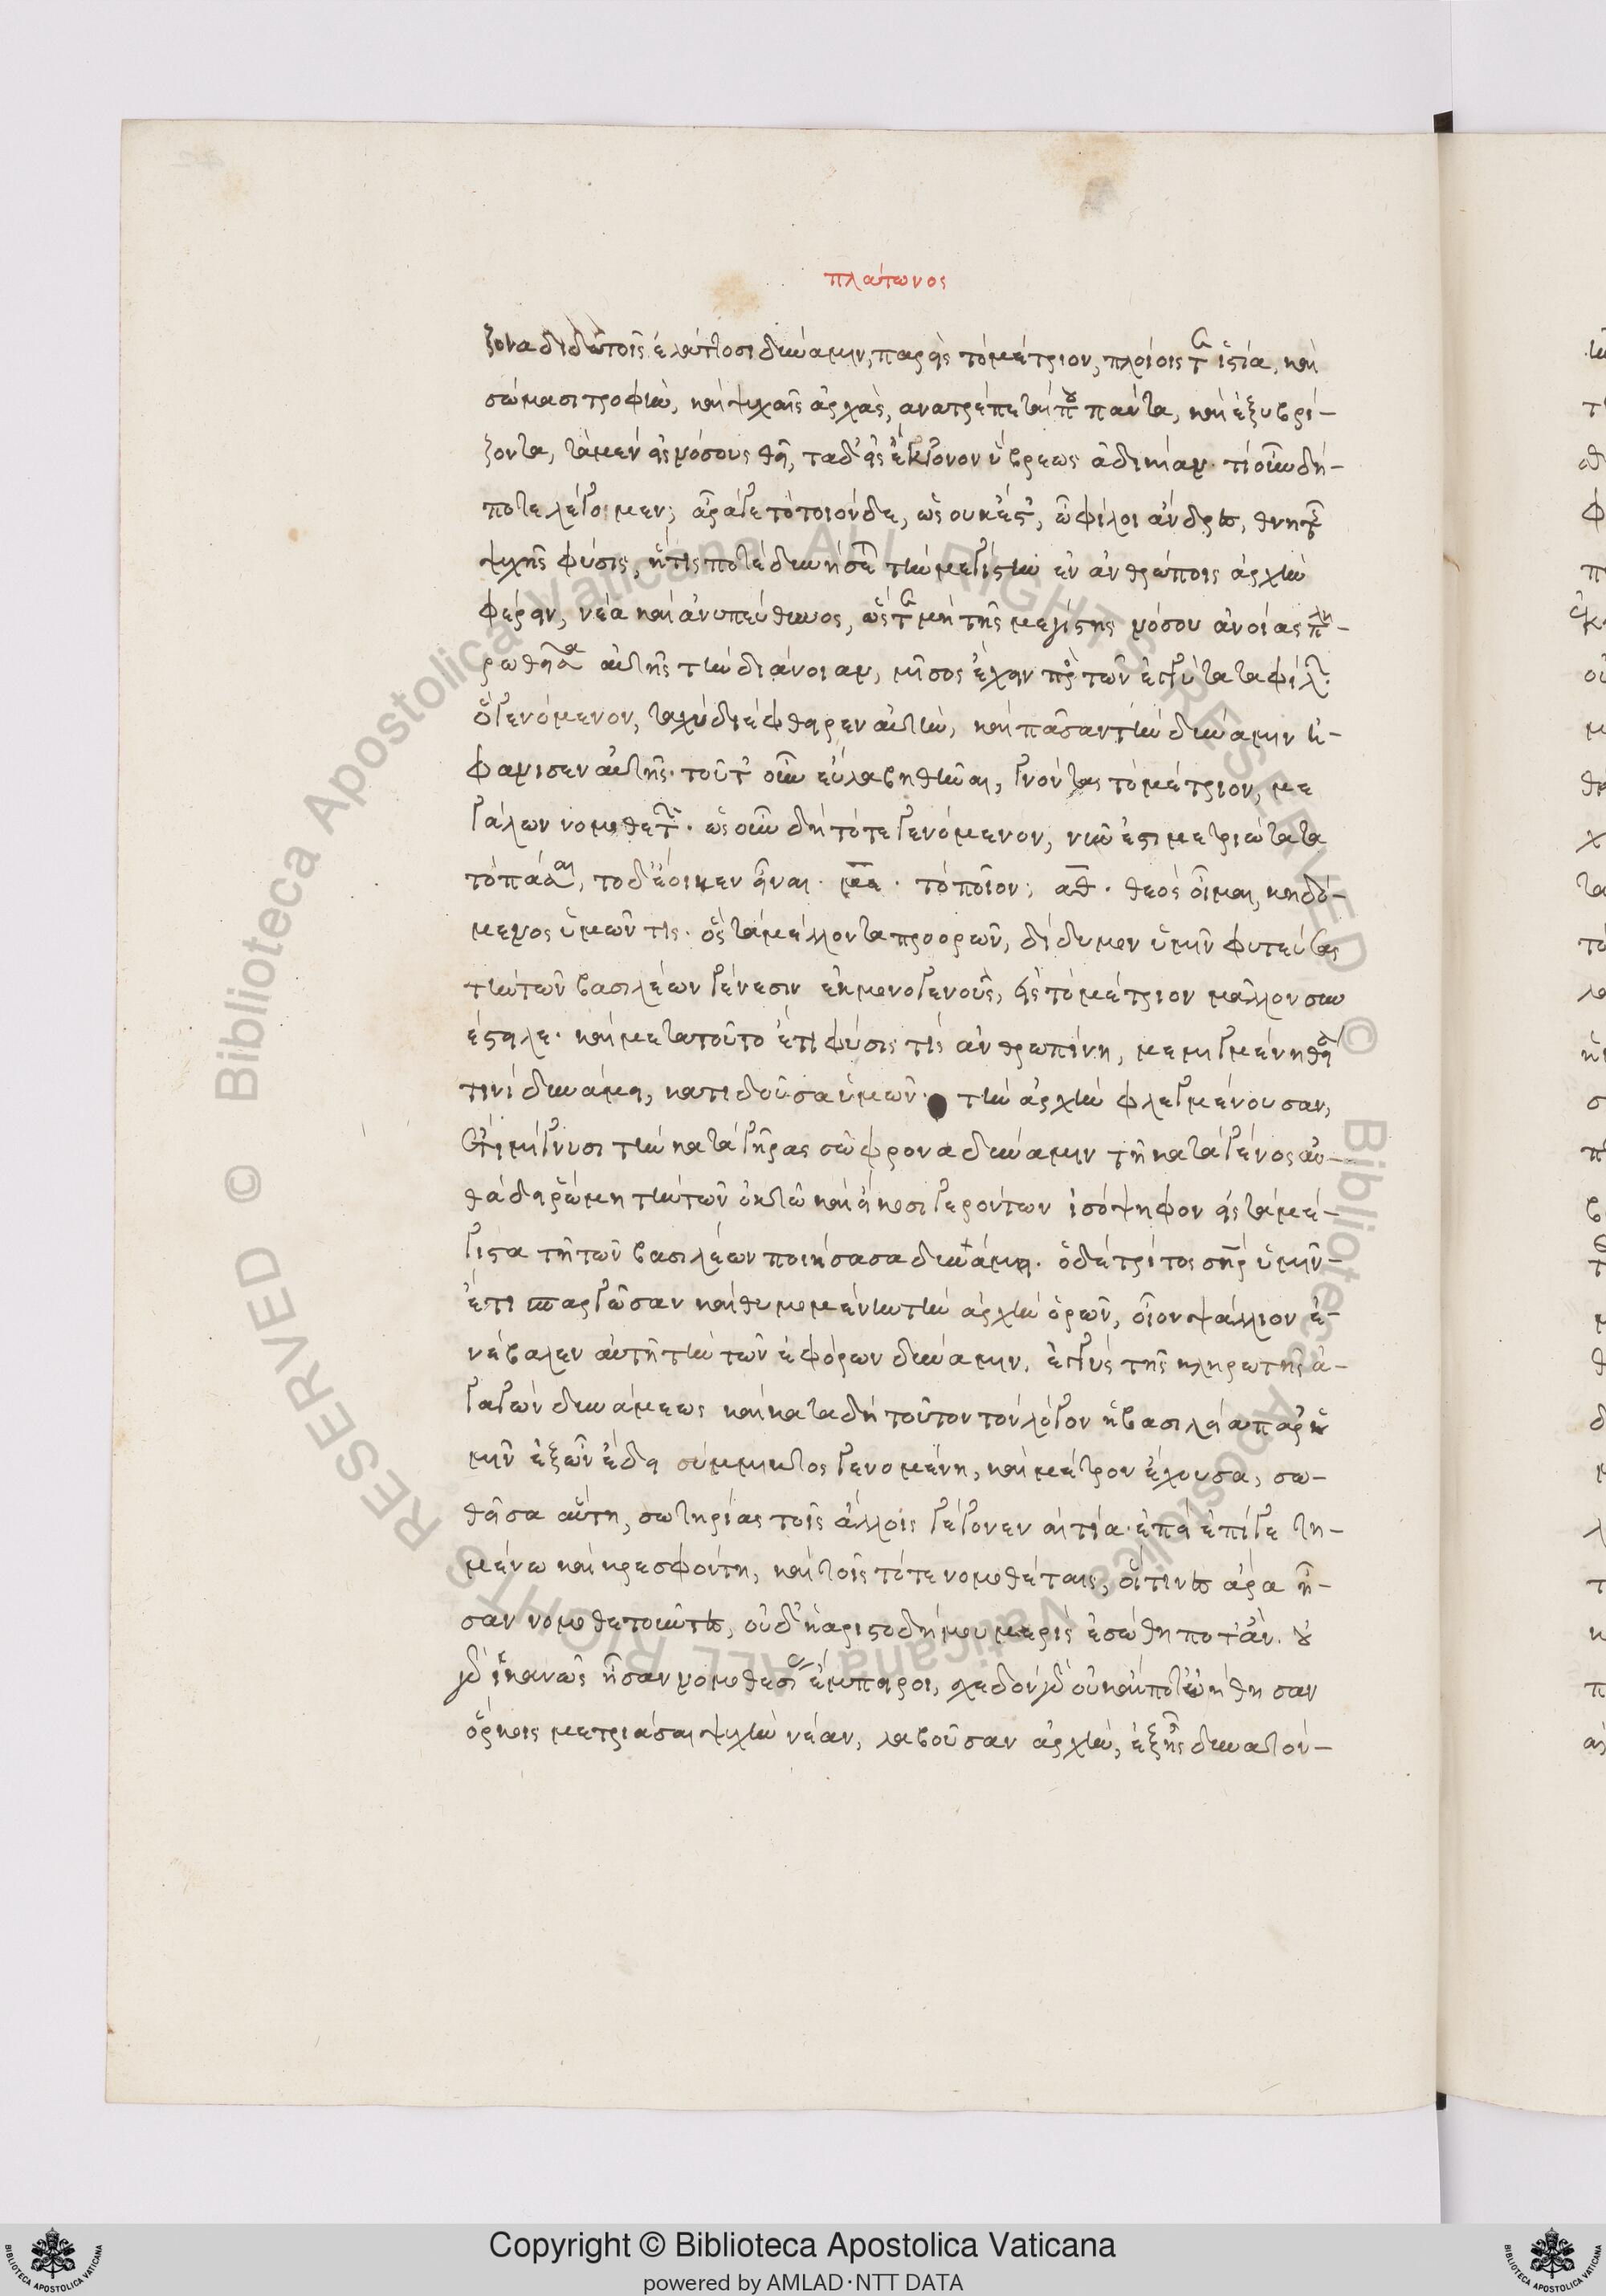 πλάτωνος
ζονα διδῶ τοῖς ἐλάττοσι δύναμιν, παρεὶς τὸ μέτριον, πλοίοις τε ἱστία, καὶ
σώμασι τροφὴν, καὶ ψυχαῖς ἀρχὰς, ἀνατρέπεταί που πάντα, καὶ ἐξυβρί-
ζοντα, τὰ μὲν εἰς νόσους θεῖ, τὰ δ' εἰς ἔκγονον ὕβρεως ἀδικίαν. τί οὖν δή-
ποτε λέγοιμεν; ἆρά γε τὸ τοιόνδε, ὡς οὐκ ἔστ', ὦ φίλοι ἄνδρες, θνητῆς
ψυχῆς φύσις, ἥτις ποτὲ δυνήσεται τὴν μεγίστην ἐν ἀνθρώποις ἀρχὴν
φέρειν, νέα καὶ ἀνυπεύθυνος, ὥστε μὴ τῆς μεγίστης νόσου ἀνοίας πλη-
ρωθεῖσα αὐτῆς τὴν διάνοιαν, μῖσος ἔχειν πρὸς τῶν ἐγγύτατα φίλων.
ὃ γενόμενον, ταχὺ διέφθειρεν αὐτὴν, καὶ πᾶσαν τὴν δύναμιν ἠ-
φάνισεν αὐτῆς. τοῦτ' οὖν εὐλαβηθῆναι, γνόντας τὸ μέτριον, με
γάλων νομοθετῶν. ὡς οὖν δὴ τότε γενόμενον, νῦν ἔστι μετριώτατα
τοπάσαι, τὸ δ' ἔοικεν εἶναι. με. τὸ ποῖον; αθ. θεὸς οἶμαι, κηδό-
μενος ὑμῶν τις. ὃς τὰ μέλλοντα προορῶν, δίδυμον ὑμῖν φυτεύσας
τὴν τῶν βασιλέων γένεσιν ἐκ μονογενοῦς, εἰς τὸ μέτριον μᾶλλον συν
έστειλε. καὶ μετὰ τοῦτο ἔτι φύσις τὶς ἀνθρωπίνη, μεμιγμένη θείᾳ
τινὶ δυνάμει, κατιδοῦσα ὑμῶν τὴν ἀρχὴν φλεγμαίνουσαν,
ἔτι μίγνυσι τὴν κατὰ γῆρας σώφρονα δύναμιν τῇ κατὰ γένος αὐ-
θάδει ῥώμῃ τὴν τῶν ὀκτὼ καὶ εἴκοσι γερόντων ἰσόψηφον εἰς τὰ μέ-
γιστα τῇ τῶν βασιλέων ποιήσασα δυνάμει. ὁ δὲ τρίτος σωτὴρ ὑμῖν
ἔτι σπαργῶσαν καὶ θυμουμένην τὴν ἀρχὴν ὁρῶν, οἷον ψάλλιον ἐ-
νέβαλεν αὐτῇ τὴν τῶν ἐφόρων δύναμιν, ἐγγὺς τῆς κληρωτῆς ἀ-
γαγὼν δυνάμεως καὶ κατὰ δὴ τοῦτον τὸν λόγον ἡ βασιλεία παρ' ὑ
μῖν ἐξ ὧν ἔδει σύμμικτος γενομένη, καὶ μέτρον ἔχουσα, σω-
θεῖσα αὕτη, σωτηρίας τοῖς ἄλλοις γέγονεν αἰτία. ἐπεὶ ἐπί γε τη-
μένῳ καὶ κρεσφόντῃ, καὶ τοῖς τότε νομοθέταις, οἵτινες ἄρα ἦ-
σαν νομοθετοῦντες, οὐδ' ἡ ἀριστοδήμου μερὶς ἐσώθη ποτ' ἄν. οὐ
γὰρ ἱκανῶς ἦσαν νομοθεσίας ἔμπειροι, σχεδὸν γὰρ οὐκ ἄν ποτ' ᾠήθησαν
ὅρκοις μετριάσαι ψυχὴν νέαν, λαβοῦσαν ἀρχὴν, ἐξ ἧς δυνατὸν